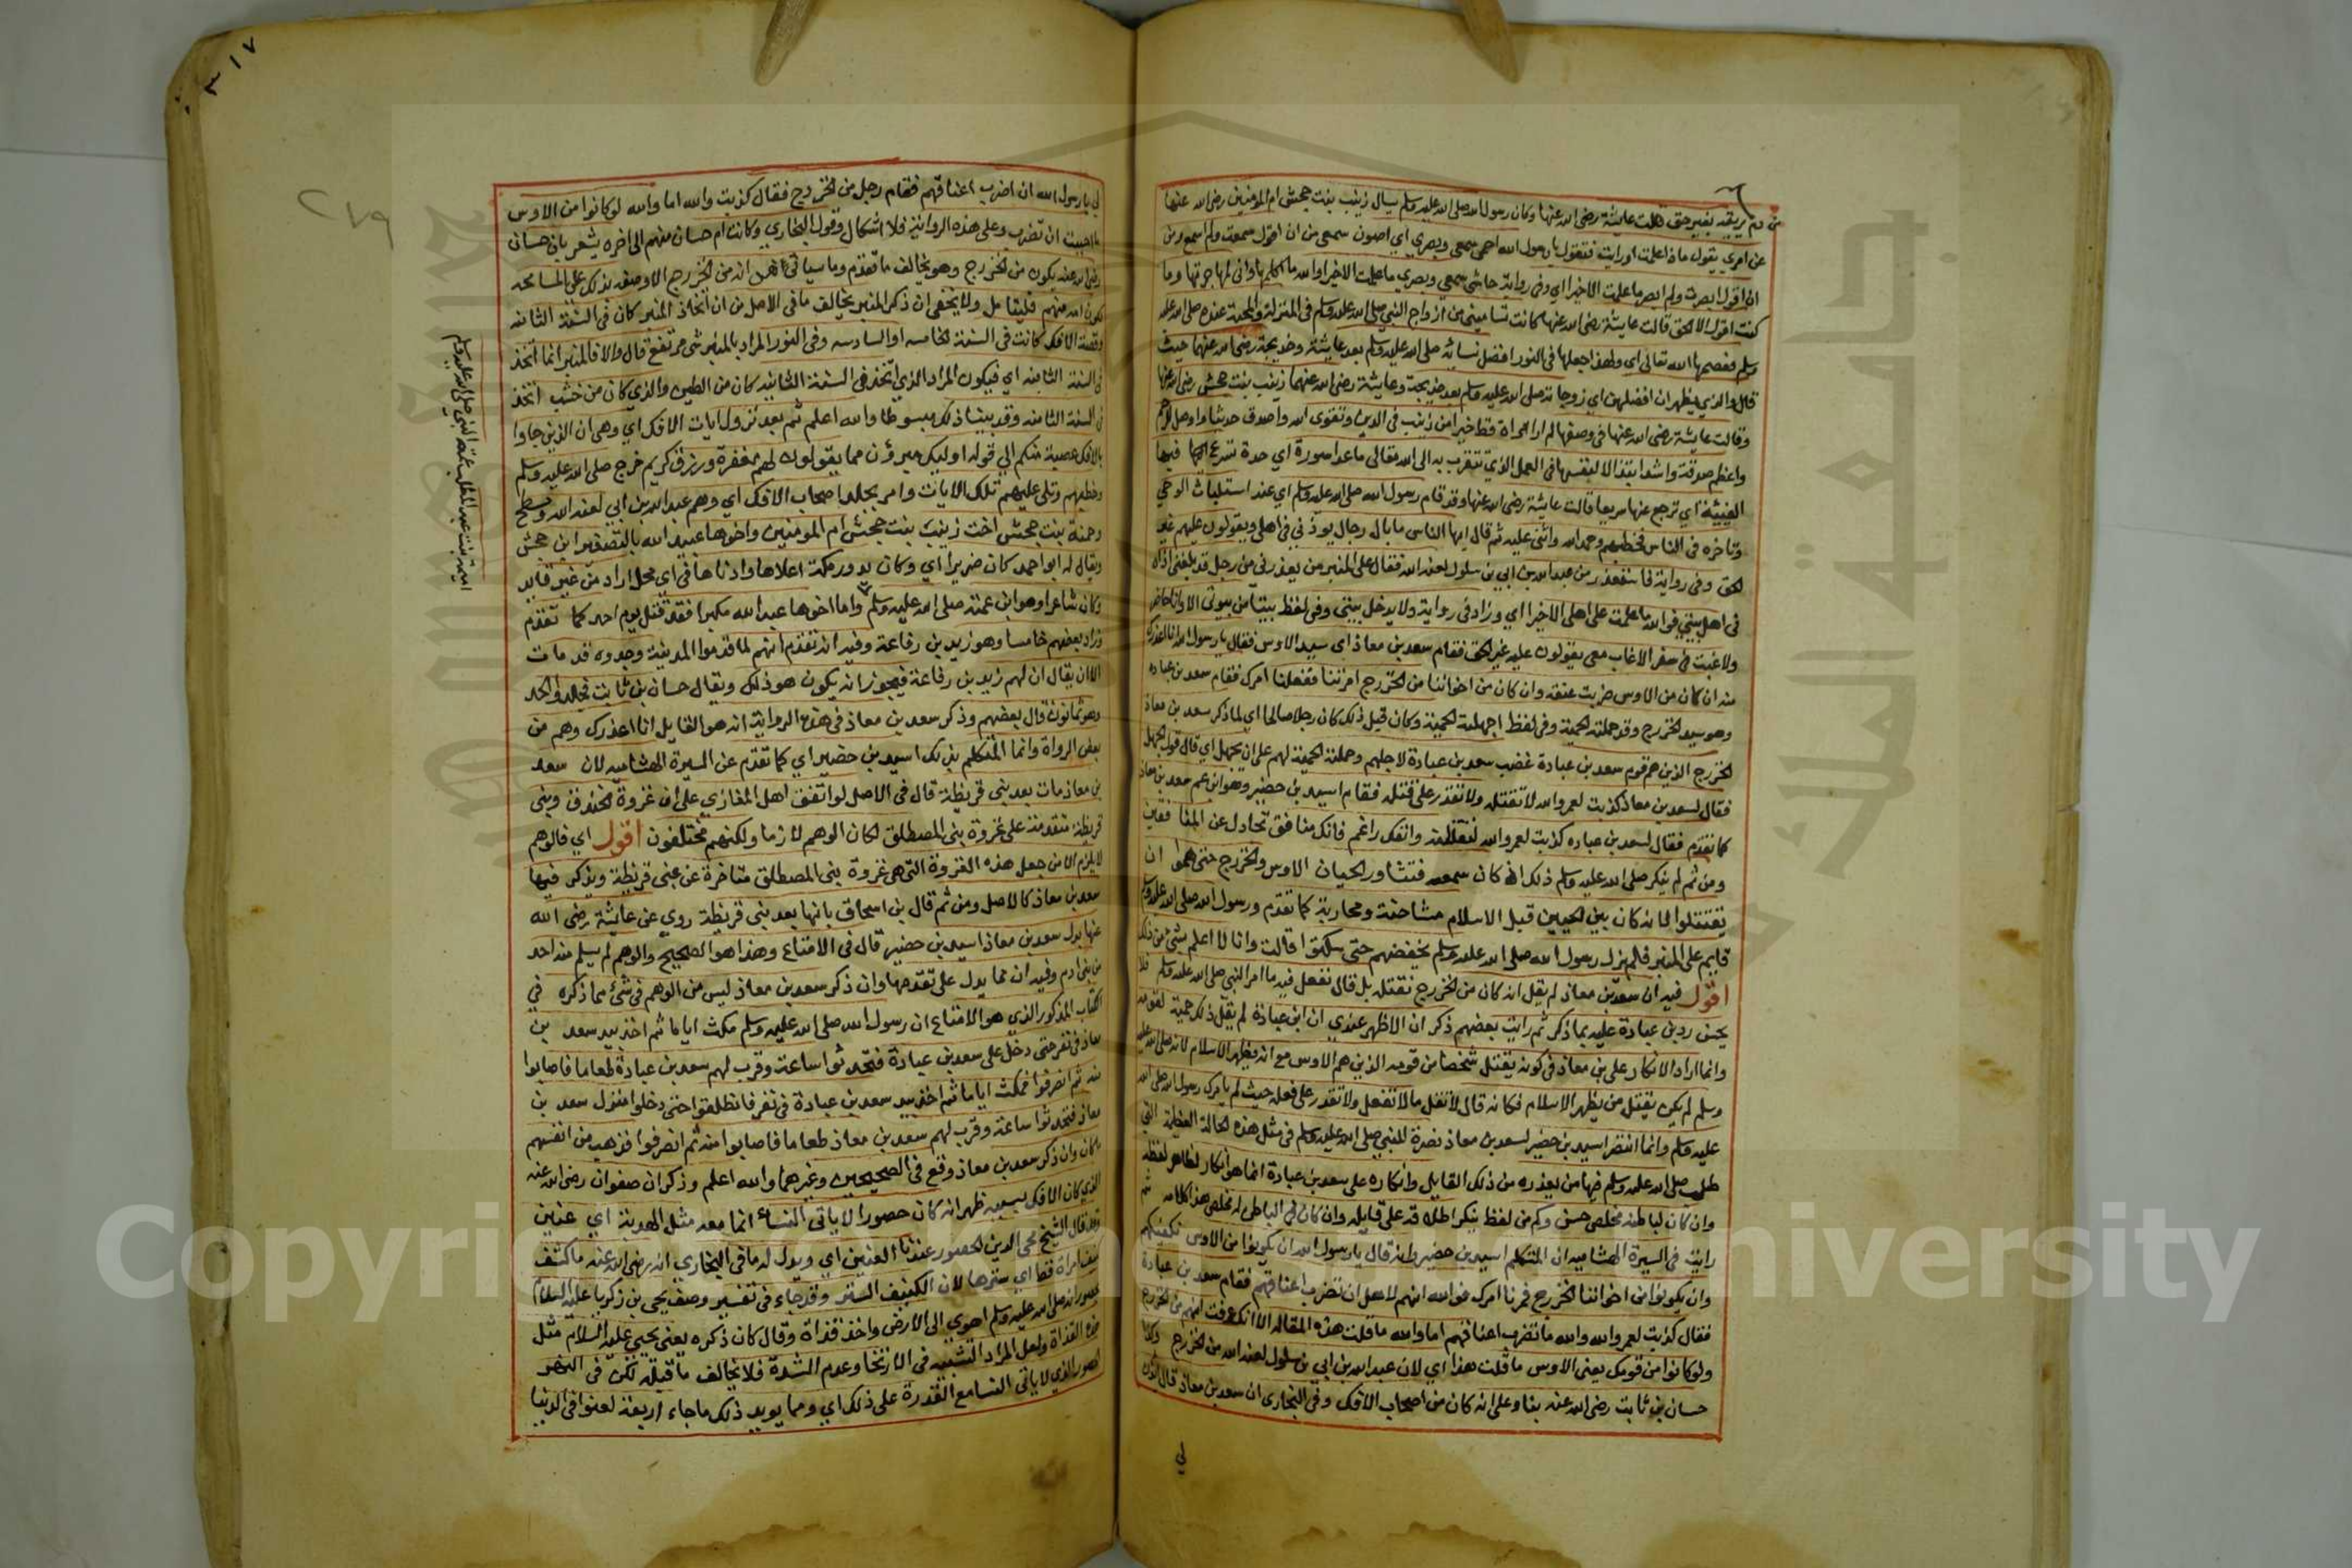 من دم بريقه بغير حتى قالت عايشة رضي الله عنها وكان رسول الله صلى الله عليه وسلم يسال زينب بنت جحش ام المومنين رضي الله عنها
عن امري يقول ماذا علمت او رايت فتقول يا رسول الله احمي سمعي وبصري اي اصون سمعي من ان اقول سمعت ولم اسمع ومن
ان اقول ابصرت ولم ابصر ما علمت الا خيرا اي وفي رواية حاشى سمعي وبصري ما علمت الا خيرا والله ما اكلمها واني لمهاجرتها وما
كنت اقول الا الحق قالت عايشة رضي الله عنها كانت تساميني من ازواج النبي صلى الله عليه وسلم في المنزلة والمحبة عنده صلى الله عليه
وسلم فعصمها الله تعالى اي ولهذا جعلها في النور افضل نسائه صلى الله عليه وسلم بعد عايشة وخديجة رضي الله عنهما حيث
قال والذي يظهر ان افضلهن اي زوجاته صلى الله عليه وسلم بعد خديجة وعايشة رضي الله عنهما زينب بنت جحش رضي الله عنها
وقالت عايشة رضي الله عنها في وصفها لم ار امراة قط خيرا من زينب في الدين وتقوى الله واصدق حديثا واوصل للرحم
واعظم صدقة واشد ابتذالا لنفسها في العمل الذي تتقرب به الى الله تعالى ما عدا سورة اي حدة تسرع فيها
الفيئة اي ترجع عنها سريعا قالت عايشة رضي الله عنها وقد قام رسول الله صلى الله عليه وسلم اي عند استلباث الوحي
وتاخره في الناس فخطبهم وحمد الله واثنى عليه ثم قال ايها الناس ما بال رجال يوذوني في اهلي ويقولون عليهم غير
الحق وفي رواية فاستعذر من عبد الله بن ابي بن سلول لعنه الله فقال على المنبر من يعذرني من رجل قد بلغني اذاه
في اهل بيتي فوالله ما علمت على اهلي الا خيرا اي وزاد في رواية ولا يدخل بيتي وفي لفظ بيتا من بيوتي الا وانا حاضر
ولا غبت في سفر الا غاب معي يقولون عليه غير الحق فقام سعد بن معاذ اي سيد الاوس فقال يا رسول الله انا اعذرك
منه ان كان من الاوس ضربت عنقه وان كان من اخواننا من الخزرج امرتنا ففعلنا امرك فقام سعد بن عباده
وهو سيد الخزرج وقد حملته الحمية وفي لفظ اجهلته الحمية وكان قبل ذلك كان رجلا صالحا اي لما ذكر سعد بن معاذ
الخزرج الذين هم قوم سعد بن عبادة غضب سعد بن عبادة لاجلهم وحملته الحمية لهم على ان يجهل اي قال قول الجهل
فقال لسعد بن معاذ كذبت لعمر والله لا تقتله ولا تقدر على قتله فقام اسيد بن حضير وهو ابن عم سعد بن معاذ
كما تقدم فقال لسعد بن عباده كذبت لعمر والله لنقتلنه وانفك راغم فانك منافق تجادل عن المنافقين
ومن ثم لم ينكر صلى الله عليه وسلم ذلك اذ كان سمعه فتشاور الحيان الاوس والخزرج حتى هموا ان
يقتتلوا لما نه كان بين الحيين قبل الاسلام مشاحنة ومحاربة كما تقدم ورسول الله صلى الله عليه وسلم
قايم على المنبر فلم يزل رسول الله صلى الله عليه وسلم يخفضهم حتى سكتوا قالت وانا لا اعلم بشئ من ذلك
اقول فيه ان سعد بن معاذ لم يقل انه كان من الخزرج نقتله بل قال نفعل فيه ما امر النبي صلى الله عليه وسلم فلا
يحسن رد بن عبادة عليه بما ذكر ثم رايت بعضهم ذكر ان الاظهر عندي ان ابن عبادة لم يقل ذلك حمية لقومه
وانما اراد الانكار على بن معاذ في كونه يقتل شخصا من قومه الذين هم الاوس مع انه يظهر الاسلام لانه صلى الله عليه
وسلم لم يكن يقتل من يظهر الاسلام فكانه قال لا تقل ما لا تفعل ولا تقدر على فعله حيث لم يامرك رسول الله صلى الله
عليه وسلم وانما انتصر اسيد بن حضير لسعد بن معاذ نصرة للنبي صلى الله عليه وسلم في مثل هذه الحالة العظيمة التي
طلب صلى الله عليه وسلم فيها من يعذره من ذلك القايل وانكاره على سعد بن عبادة انما هو انكار لظاهر لفظه
وان كان لباطنه مخلص حسن وكم من لفظ ينكر اطلاقه على قايله وان كان في الباطن له مخلص هذا كلامه ثم
رايت في السيرة الهشامية ان المتكلم اسيد بن حضير وانه قال يا رسول الله ان يكونوا من الاوس نكفيكهم
وان يكونوا من اخواننا الخزرج فمرنا امرك فوالله انهم لاهل ان تضرب اعناقهم فقام سعد بن عبادة
فقال كذبت لعمر والله والله ما تضرب اعناقهم اما والله ما قلت هذه المقالة الا انك عرفت انهم من الخزرج
ولو كانوا من قومك يعني الاوس ما قلت هذا اي لان عبد الله بن ابي بن سلول لعنه الله من الخزرج وكذا
حسان بن ثابت رضي الله عنه بناء على انه كان من اصحاب الافك وفي البخاري ان سعد بن معاذ قال ائذن
لي
٣١٧
٢٧٩
لي يا رسول الله ان اضرب اعناقهم فقام رجل من الخزرج فقال كذبت والله اما والله لو كانوا من الاوس
ما احببت ان تضرب وعلى هذه الرواية فلا اشكال وقول البخاري وكانت ام حسان منهم الى اخره يشعر بان حسان
رضي الله عنه يكون من الخزرج وهو يخالف ما تقدم وما سياتي انه من الخزرج الا وصفه بذلك على المسامحة
لكون امه منهم فليتامل ولا يخفى ان ذكر المنبر يخالف ما في الاصل من ان اتخاذ المنبر كان في السنة الثامنه
وقصة الافك كانت في السنة الخامسه او السادسه وفي النور المراد بالمنبر شئ مرتفع قال والا فالمنبر انما اتخذ
في السنة الثامنه اي فيكون المراد الذي اتخذ في السنة الثانيه كان من الطين والذي كان من خشب اتخذ
في السنة الثامنه وقد بينا ذلك مبسوطا والله اعلم ثم بعد نزول ايات الافك اي وهي ان الذين جاوا
بالافك عصبة منكم الى قوله اوليك مبرؤن مما يقولون لهم مغفرة ورزق كريم خرج صلى الله عليه وسلم
وخطبهم وتلى عليهم تلك الايات وامر بجلد اصحاب الافك اي وهم عبد الله بن ابي لعنه الله ومسطح
وحمنة بنت جحش اخت زينب بنت جحش ام المومنين واخوها عبيد الله بالتصغير ابن جحش
ويقال له ابو احمد كان ضريرا اي وكان يدور مكة اعلاها وادناها في اي محل اراد من غير قايد
وكان شاعرا وهو ابن عمته صلى الله عليه وسلم واما اخوها عبد الله مكبرا فقد قتل يوم احد كما تقدم
وزاد بعضهم خامسا وهو زيد بن رفاعة وفيه انه تقدم انهم لما قدموا المدينة وجدوه قد مات
الا ان يقال ان لهم زيد بن رفاعة فيجوز انه يكون هو ذلك ويقال حسان بن ثابت فجلد والحد
وهو ثمانون قال بعضهم وذكر سعد بن معاذ في هذه الرواية انه هو القايل انا اعذرك وهم من
بعض الرواة وانما المتكلم بذلك اسيد بن حضير اي كما تقدم عن السيرة الهشاميه لان سعد
بن معاذ مات بعد بني قريظة قال في الاصل لو اتفق اهل المغازي على ان غزوة الخندق وبني
قريظة متقدمة على غزوة بني المصطلق لكان الوهم لازما ولكنهم مختلفون اقول اي فالوهم
لا يلزم الا من جعل هذه الغزوة التي هي غزوة بني المصطلق متاخرة عن بني قريظة ويذكر فيها
سعد بن معاذ كالاصل ومن ثم قال بن اسحاق بانها بعد بني قريظة روي عن عايشة رضي الله
عنها بدل سعد بن معاذ اسيد بن حضير قال في الامتاع وهذا هو الصحيح والوهم لم يسلم منه احد
من بني ادم وفيه ان مما يدل على تقدمها وان ذكر سعد بن معاذ ليس من الوهم في شئ مما ذكره في
الكتاب المذكور الذي هو الامتاع ان رسول الله صلى الله عليه وسلم مكث اياما ثم اخذ بيد سعد بن
معاذ في نفر حتى دخل على سعد بن عبادة فتحدثوا ساعة وقرب لهم سعد بن عبادة طعاما فاصابوا
منه ثم انصرفوا فمكث اياما ثم اخذ بيد سعد بن عبادة في نفر فانطلقوا حتى دخلوا منزل سعد بن
معاذ فتحدثوا ساعة وقرب لهم سعد بن معاذ طعاما فاصابوا منه ثم انصرفوا فذهب من انفسهم
ما كان وان ذكر سعد بن معاذ وقع في الصحيحين وغيرهما والله اعلم وذكر ان صفوان رضي الله عنه
الذي كان الافك بسببه ظهر انه كان حصورا لا ياتي النساء انما معه مثل الهدبة اي عنين
وقد قال الشيخ محي الدين الحصور عندنا العنين اي ويدل له ما في البخاري انه رضي الله عنه ما كشف
كنف امراة قط اي سترها لان الكنيف الستر وقد جاء في تفسير وصف يحيى بن زكريا عليه السلام
بحصور انه صلى الله عليه وسلم اهوى الى الارض واخذ قذاة وقال كان ذكره يعني يحيى عليه السلام مثل
هذه القذاة ولعل المراد التشبيه في الارتخا وعدم الشدة فلا يخالف ما قبله لكن في النهر
الحصور الذي لا ياتي النسا مع القدرة على ذلك اي ومما يويد ذلك ما جاء اربعة لعنوا في الدنيا
اميمة بنت عبد المطلب عمة النبي صلى الله عليه وسلم
جامعة الملك سعود
Copyright © King Saud University